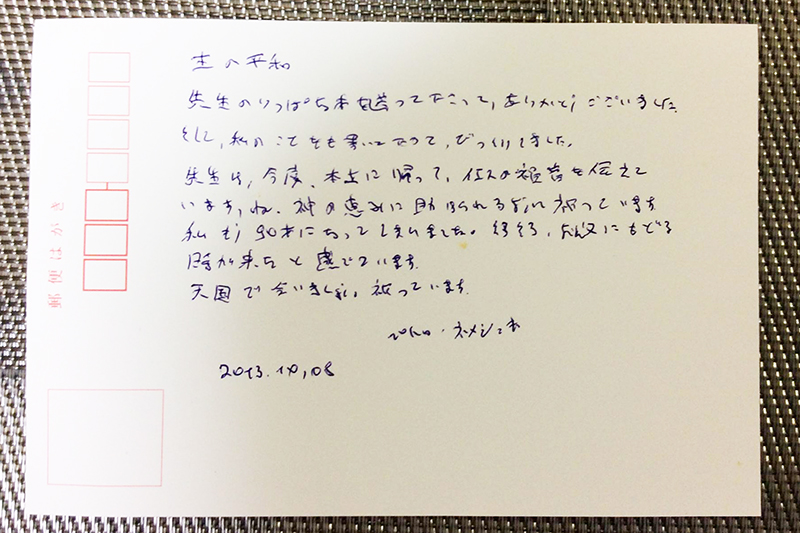 主の平和
先生のりっぱな本を送って下さって、ありがとうございました
そして、私のことをも書いて下さって、びっくりしました。
先生は、今度、本土に帰って、イエスの福音を伝えて
いますね。神の恵みに助けられるように祈っています
私も90才になってしまいました。
時が来たと感じています
天国で会いましょう。祈っています
郵便はがき
2013.10,08